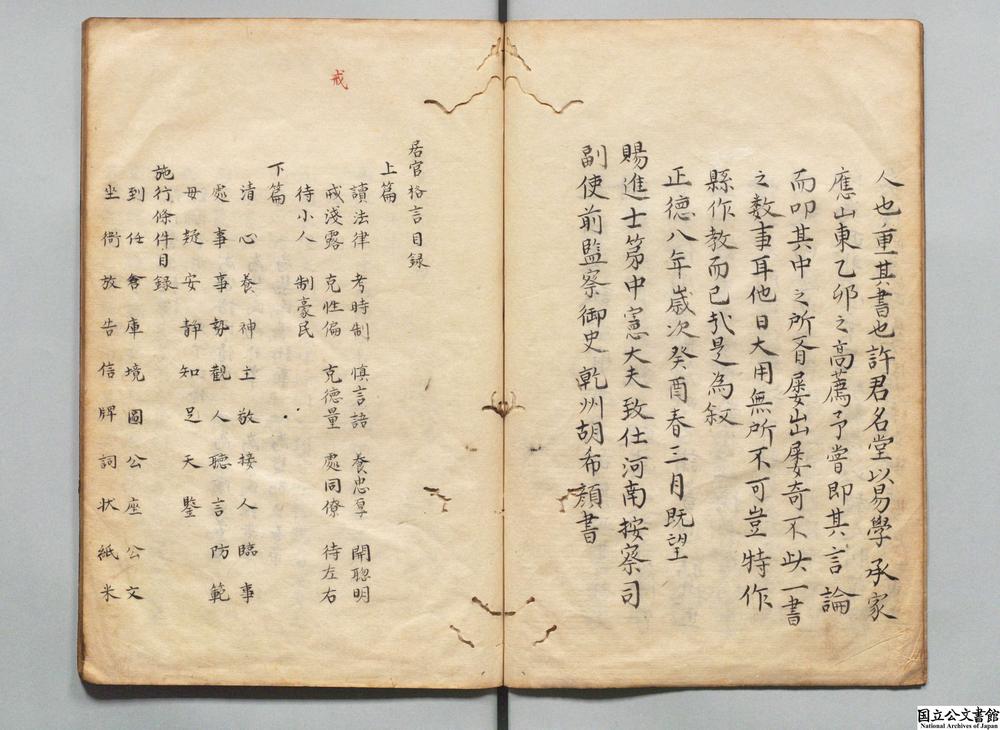 人也重其書也許君名堂以易學承家
應山東乙卯之高薦予嘗即其言論
而叩其中之所有屡出屡奇不此一書
之数事耳他日大用無所不可豈特作
縣作教而已㢤是為叙
正德八年歲次癸酉春三月既望
賜進士第中憲大夫致仕河南按察司
副使前監察御史乾州胡希顔書
戒
居官格言目録
上篇
讀法律 考時制 慎言語 養忠厚 開聡明
戒淺露 克性偏 克德量 處同僚 待左右
待小人 制豪民
下篇
清心 養神 主敬 接人 臨事
處事 事勢 觀人 聽言 防範
毋疑 安靜 知足 天鑒
施行條件目録
到任 倉庫 境圖 公座 公文
坐衙 放告 信牌 詞状 紙米
国立公文書館
National Archives of Japan